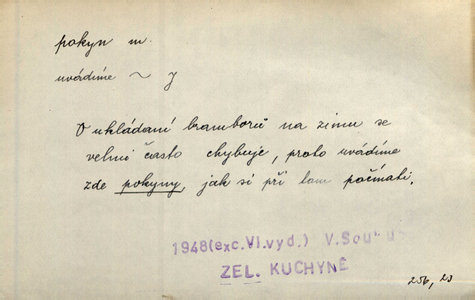 pokyn m.
uvádíme ~ J
O ukládání bramborů na zimu se
velmi často chybuje, proto uvádíme
zde pokyny, jak si při tom počínati.
1948 (exc. VI. vyd.) V.
ZEL. KUCHYNĚ
256, 23